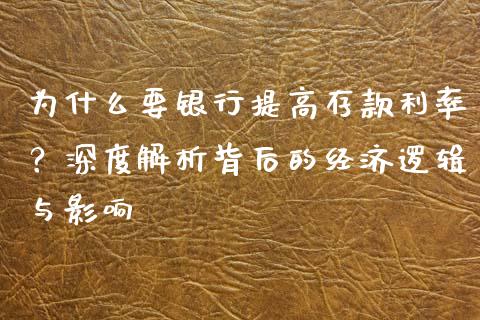 为什么要银行提高存款利率
？深度解析背后的经济逻辑
与影响